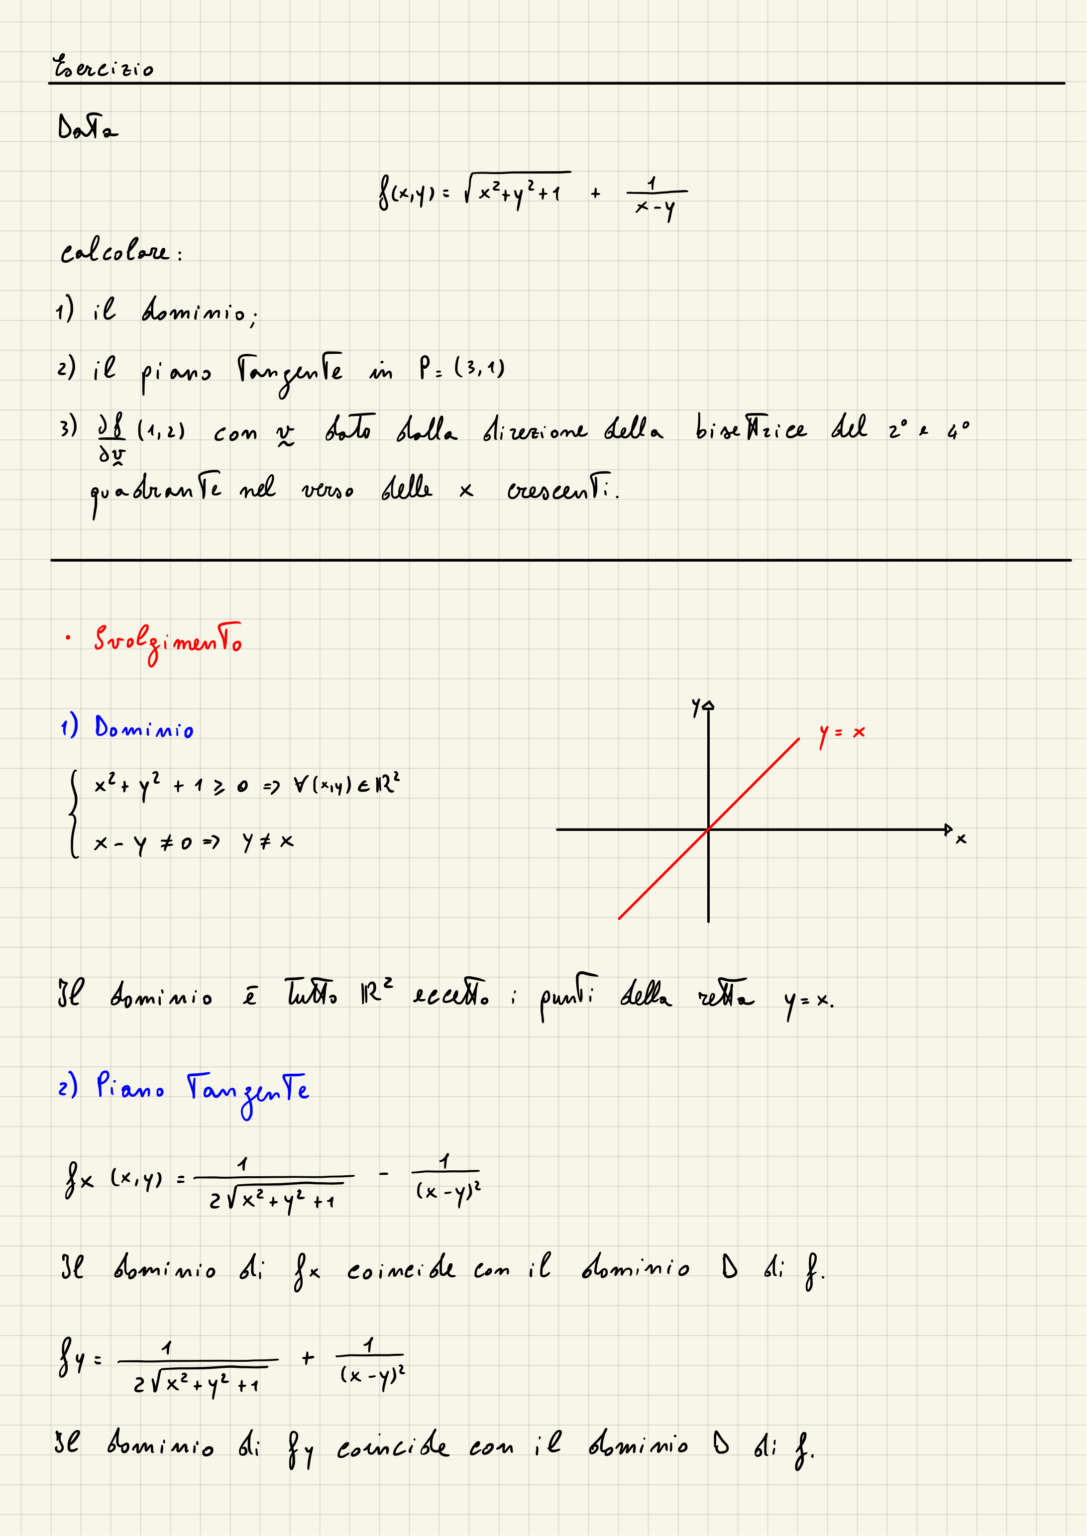 Esercizio
Data
f(x,y) = √(x²+y²+1) + 1/(x-y)
calcolare:
1) il dominio;
2) il piano tangente in P = (3,1)
3) ∂f/∂v (1,2) con v dato dalla direzione della bisettrice del 2° e 4°
quadrante nel verso delle x crescenti.
• Svolgimento
1) Dominio
{ x² + y² + 1 ≥ 0 => ∀(x,y) ∈ ℝ²
x - y ≠ 0 => y ≠ x
y
y = x
x
Il dominio è tutto ℝ² eccetto i punti della retta y = x.
2) Piano Tangente
fx (x,y) = 1/(2√(x²+y²+1)) - 1/(x-y)²
Il dominio di fx coincide con il dominio D di f.
fy = 1/(2√(x²+y²+1)) + 1/(x-y)²
Il dominio di fy coincide con il dominio D di f.